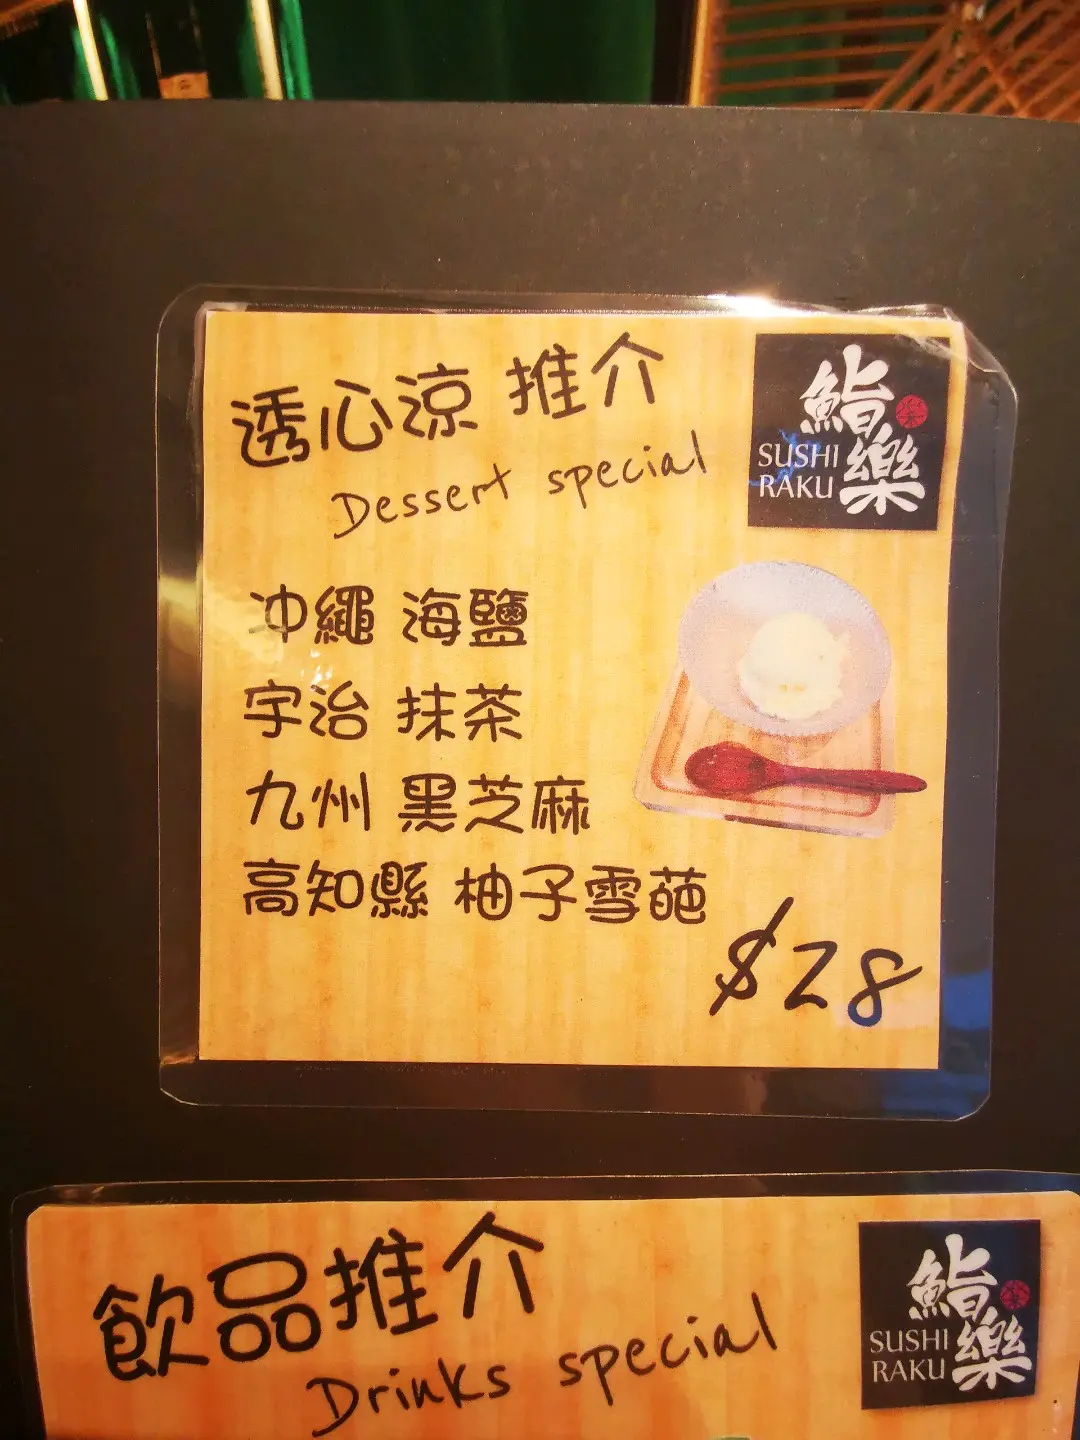 透心涼 推介
Dessert special
鮨樂
SUSHI
RAKU
冲繩 海鹽
宇治 抹茶
九州 黑芝麻
高知縣 柚子雪葩
$28
飲品推介
Drinks special
鮨樂
SUSHI
RAKU